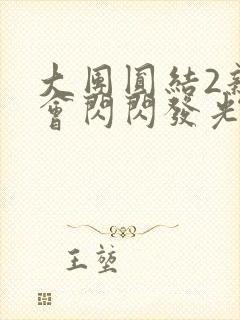 大團圓結2新
會閃閃發光
王堃